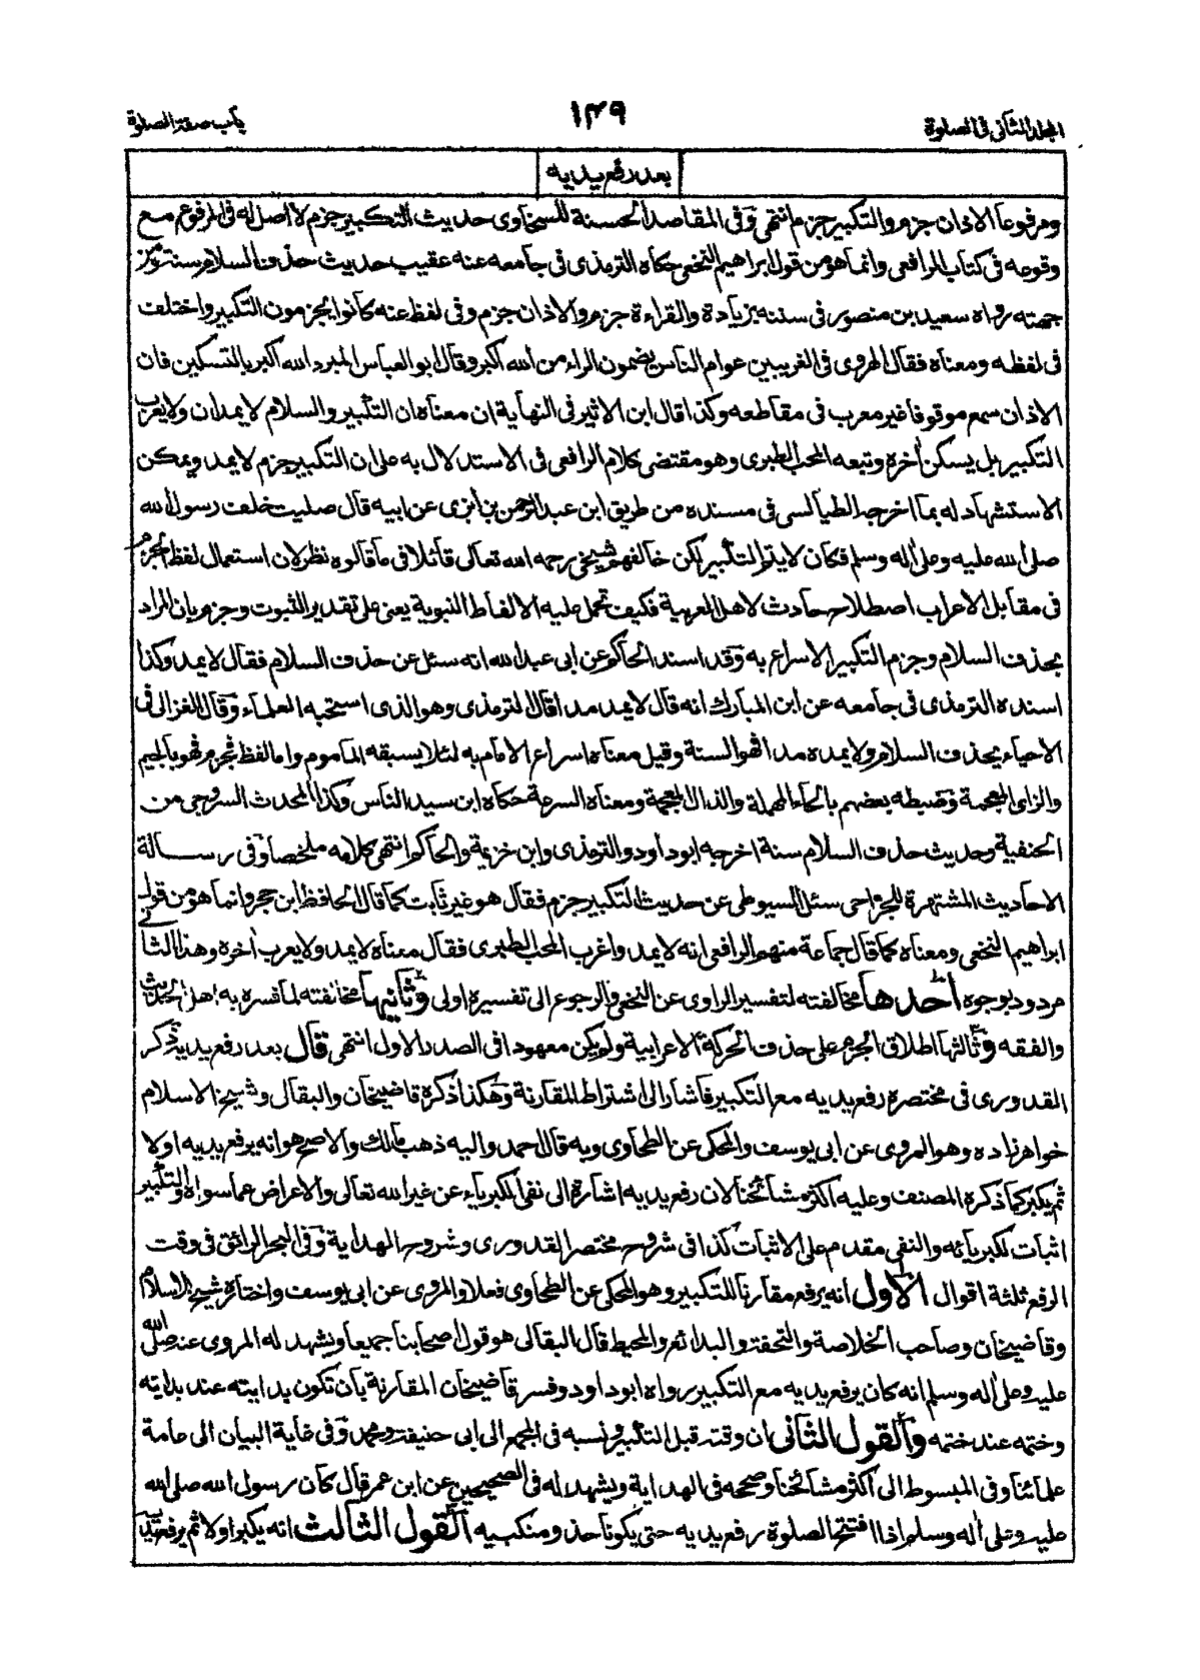 المجلد الثاني في الصلوة
١٤٩
باب صفة الصلوة
بعد رفع يديه
ومرفوعا الاذان جزم والتكبير جزم انتهى وفى المقاصد الحسنة للسخاوى حديث التكبير جزم لا اصل له فى المرفوع مع
وقوعه فى كتاب الرافعى وانما هو من قول ابراهيم النخعى حكاه الترمذى فى جامعه عنه عقيب حديث حذف السلام سنة ومن
جهته رواه سعيد بن منصور فى سننه بزيادة والقراءة جزم والاذان جزم وفى لفظ عنه كانوا يجزمون التكبير واختلف
فى لفظه ومعناه فقال الهروى فى الغريبين عوام الناس يضمون الراء من الله اكبر وقال ابو العباس المبرد الله اكبر بالتسكين فان
الاذان سمع موقوفا غير معرب فى مقاطعه وكذا قال ابن الاثير فى النهاية ان معناه ان التكبير والسلام لا يمدان ولا يعرب
التكبير بل يسكن أخره وتبعه المحب الطبرى وهو مقتضى كلام الرافعى فى الاستدلال به على ان التكبير جزم لا يمد ويمكن
الاستشهاد له بما اخرجه الطيالسى فى مسنده من طريق ابن عبد الرحمن بن ابزى عن ابيه قال صليت خلف رسول الله
صلى الله عليه وعلى أله وسلم فكان لا يتم التكبير لكن خالفهم شيخى رحمه الله تعالى قائلا فى ما قالوه نظر لان استعمال لفظ الجزم
فى مقابل الاعراب اصطلاح حادث لاهل العربية فكيف تحمل عليه الالفاظ النبوية يعنى على تقدير الثبوت وجزم بان المراد
بحذف السلام وجزم التكبير الاسراع به وقد اسند الحاكم عن ابى عبد الله انه سئل عن حذف السلام فقال لا يمد وكذا
اسنده الترمذى فى جامعه عن ابن المبارك انه قال لا يمد مدا قال الترمذى وهو الذى استحبه العلماء وقال الغزالى فى
الاحياء يحذف السلام ولا يمده مدا فهو السنة وقيل معناه اسراع الامام به لئلا يسبقه المأموم واما لفظ جزم فهو بالجيم
والزاى المعجمة وضبطه بعضهم بالحاء المهملة والذال المعجمة ومعناه السرعة حكاه ابن سيد الناس وكذا المحدث السروجى من
الحنفية وحديث حذف السلام سنة اخرجه ابو داود والترمذى وابن خزيمة والحاكم انتهى كلامه ملخصا وفى رسالة
الاحاديث المشتهرة للجراحى سئل السيوطى عن حديث التكبير جزم فقال هو غير ثابت كما قال الحافظ ابن حجر وانما هو من قول
ابراهيم النخعى ومعناه كما قال جماعة منهم الرافعى انه لا يمد واغرب المحب الطبرى فقال معناه لا يمد ولا يعرب أخره وهذا الثانى
مردود بوجوه احدها مخالفته لتفسير الراوى عن النخعى والرجوع الى تفسيره اولى وثانيها مخالفته لما فسره به اهل الحديث
والفقه وثالثها اطلاق الجزم على حذف الحركة الاعرابية ولم يكن معهودا فى الصدر الاول انتهى قال بعد رفع يديه ذكر
القدورى فى مختصره رفع يديه مع التكبير فاشار الى اشتراط المقارنة وهكذا ذكره قاضيخان والبقال وشيخ الاسلام
خواهرزاده وهو المروى عن ابى يوسف والمحكى عن الطحاوى وبه قال احمد واليه ذهب مالك والاصح هو انه يرفع يديه اولا
ثم يكبر كما ذكره المصنف وعليه اكثر مشائخنا لان رفع يديه اشارة الى نفى الكبرياء عن غير الله تعالى والاعراض عما سواه والتكبير
اثبات لكبريائه والنفى مقدم على الاثبات كذا فى شروح مختصر القدورى وشروح الهداية وفى البحر الرائق فى وقت
الرفع ثلثة اقوال الاول انه يرفع مقارنا للتكبير وهو المحكى عن الطحاوى فعلا والمروى عن ابى يوسف واختاره شيخ الاسلام
وقاضيخان وصاحب الخلاصة والتحفة والبدائع والمحيط قال البقالى هو قول اصحابنا جميعا ويشهد له المروى عنه صلى الله
عليه وعلى أله وسلم انه كان يرفع يديه مع التكبير رواه ابو داود وفسر قاضيخان المقارنة بان تكون بدايته عند بدايته
وختمه عند ختمه والقول الثانى ان وقته قبل التكبير ونسبه فى المجمع الى ابى حنيفة ومحمد وفى غاية البيان الى عامة
علمائنا وفى المبسوط الى اكثر مشائخنا وصححه فى الهداية ويشهد له فى الصحيحين عن ابن عمر قال كان رسول الله صلى الله
عليه وعلى أله وسلم اذا افتتح الصلوة رفع يديه حتى يكونا حذو منكبيه القول الثالث انه يكبر اولا ثم يرفع يديه